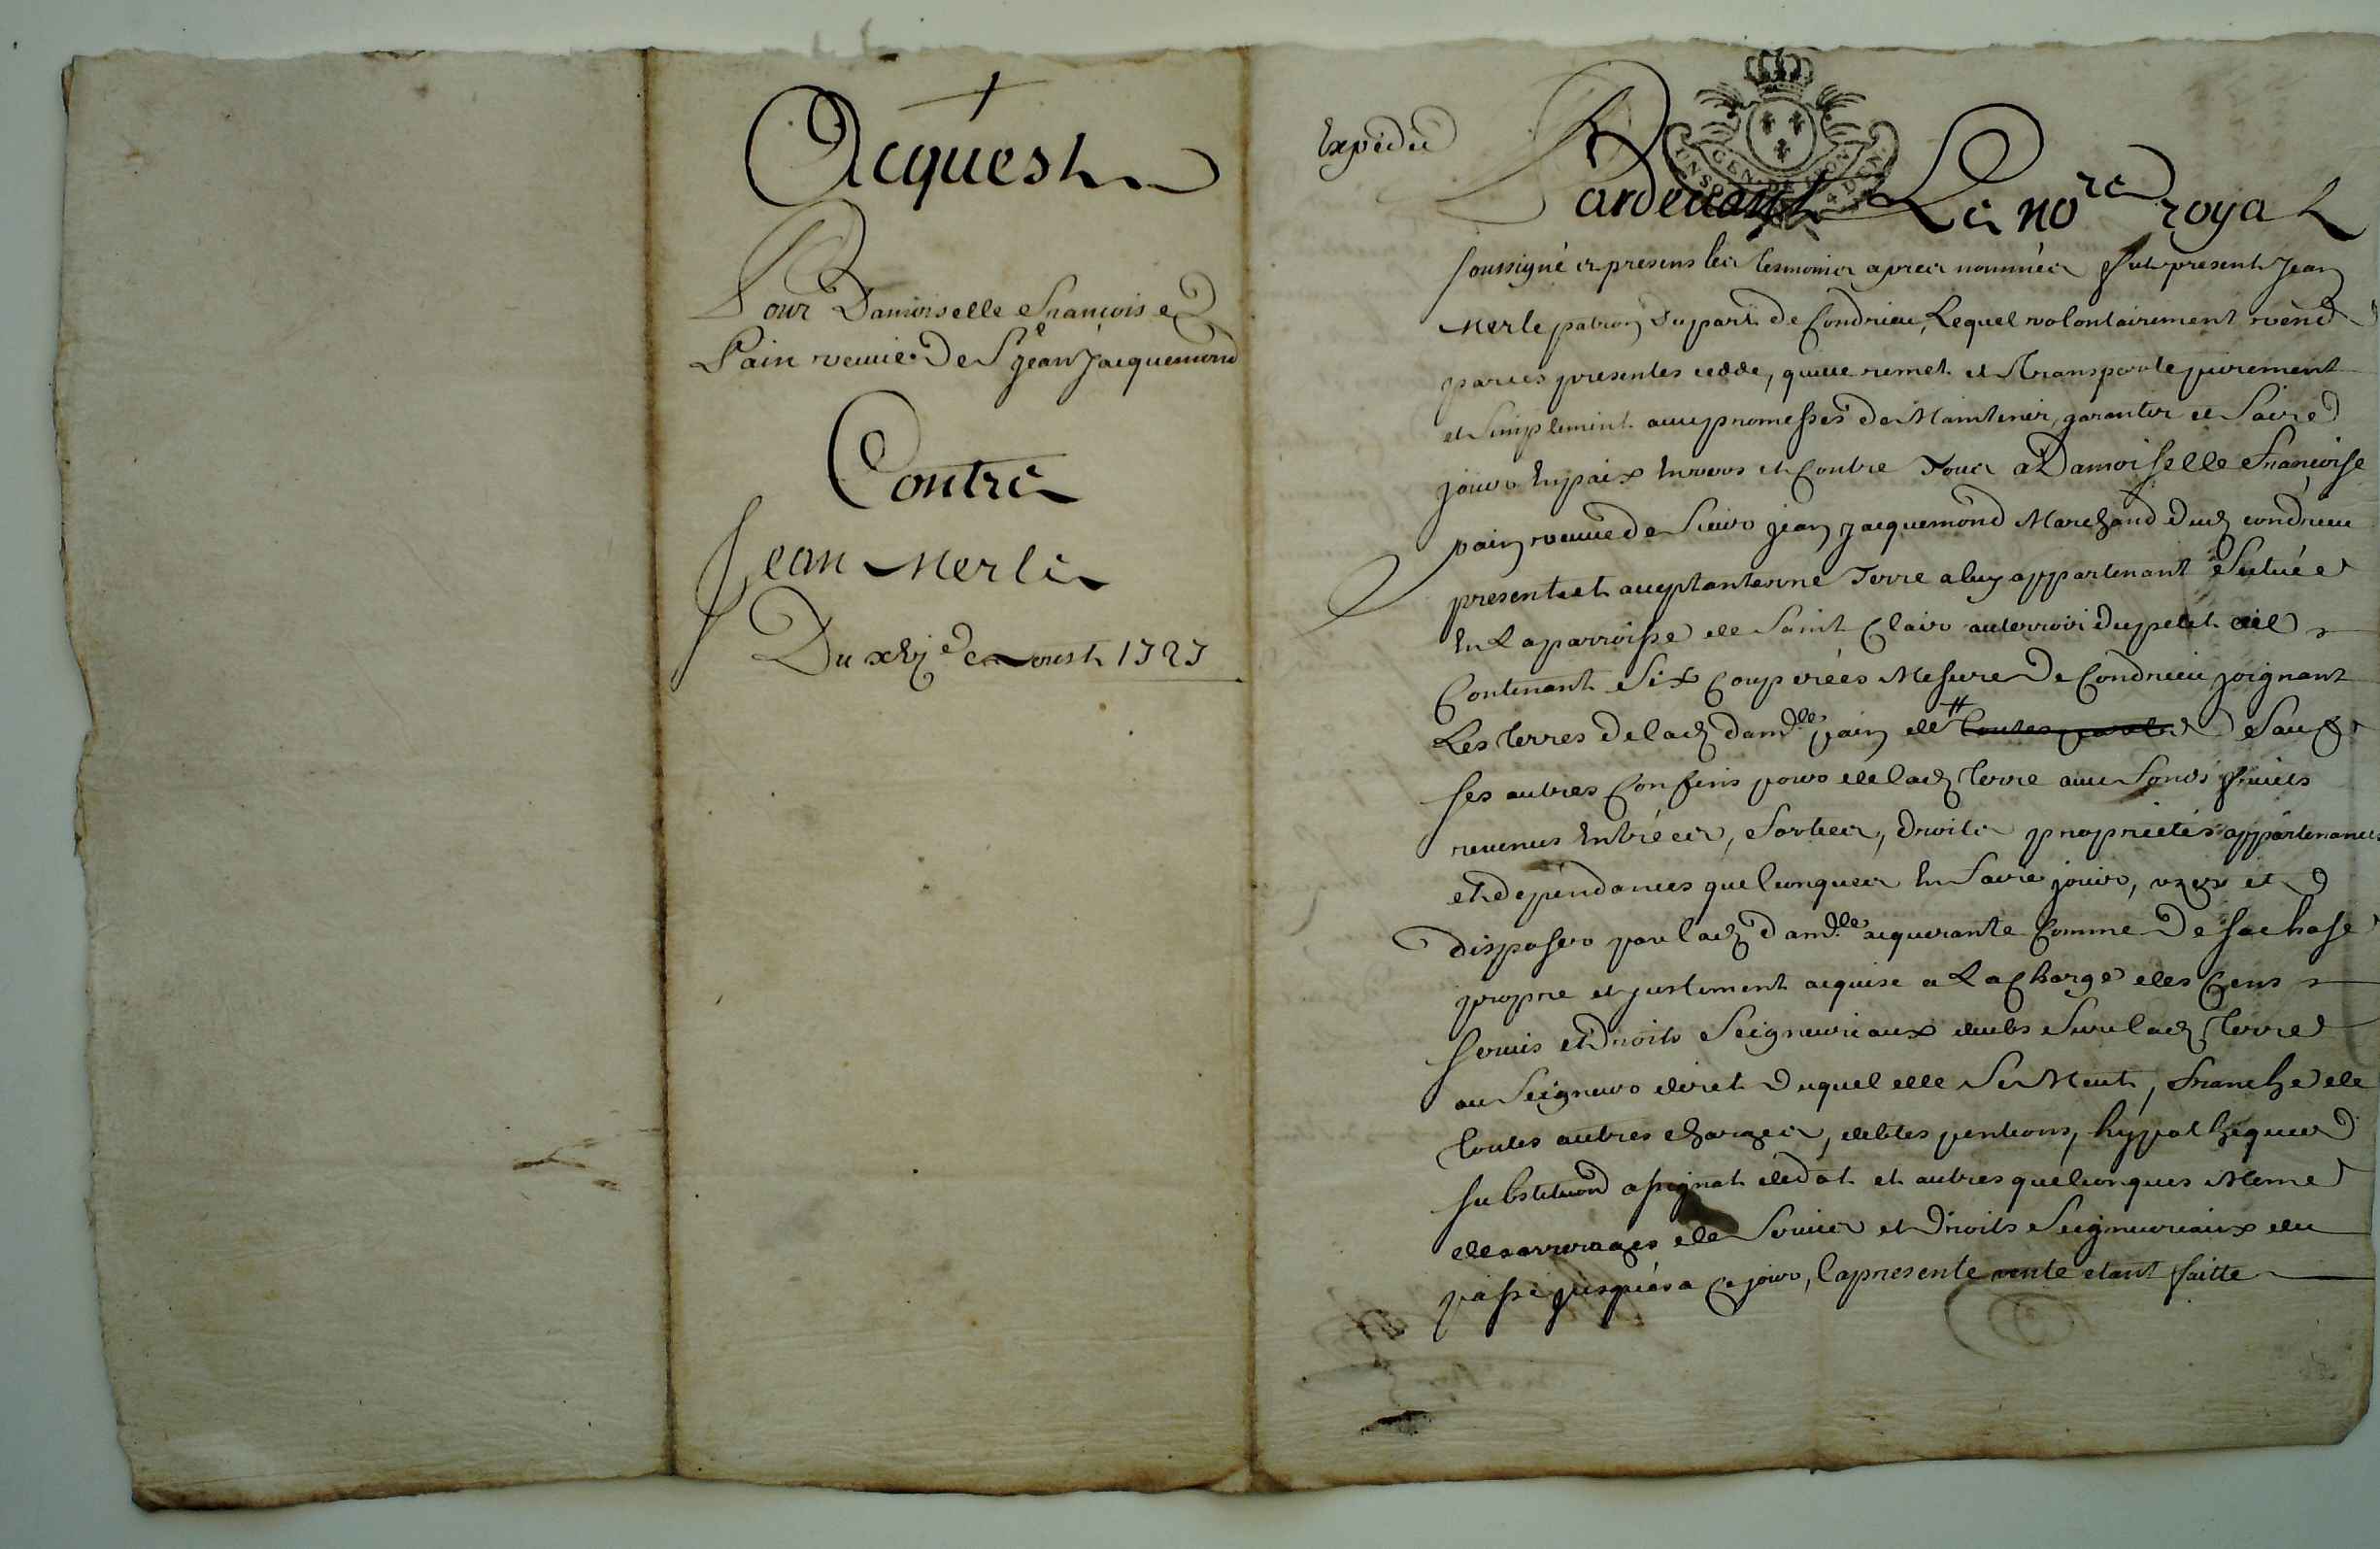 Acquest
Pour Damoiselle Francoise
Pain veuve de Sr jean jacquemond
Contre
Jean Merle
Du xvj e aoust 1727
Expedié
GEN. DE LYON
Pardevant Le nore royal
soussigné et presens les tesmoins apres nommées fut present Jean
Merle patron du port de Condrieu, Lequel volontairement vend
par ces presentes cedde, quitte remet et transporte purement
et simplement avec promesses de Maintenir, garantir et faire
jouir en paix envers et Contre Tous a Damoiselle Francoise
pain veuve de sieur jean jacquemond Marchand dud condrieu
presente et acceptante une Terre a luy appartenant située
en La parroisse de Saint Clair au terroir du petit
Contenant six Couperées Mesure De Condrieu joignant
Les terres de lad damlle pain de # toutes parts sauf
ses autres Confins pour de lad terre avec fonds fruits
revenus entrées, sorties, droits proprietés appartenances
et dependances quelconques en faire jouir, uzer et
disposer par lad damlle acquerante Comme De sa chose
propre et justement acquise a La Charge des Cens
servis et Droits Seigneuriaux deubs sur lad terre
au Seigneur diret duquel elle se Meut, franche de
toutes autres charges, debtes pentions, hypotheques
substituon assignat dedot et autres quelconques Meme
des arrerages de servis et droits Seigneuriaux du
passé jusques a Ce jour, la presente vente etant faitte